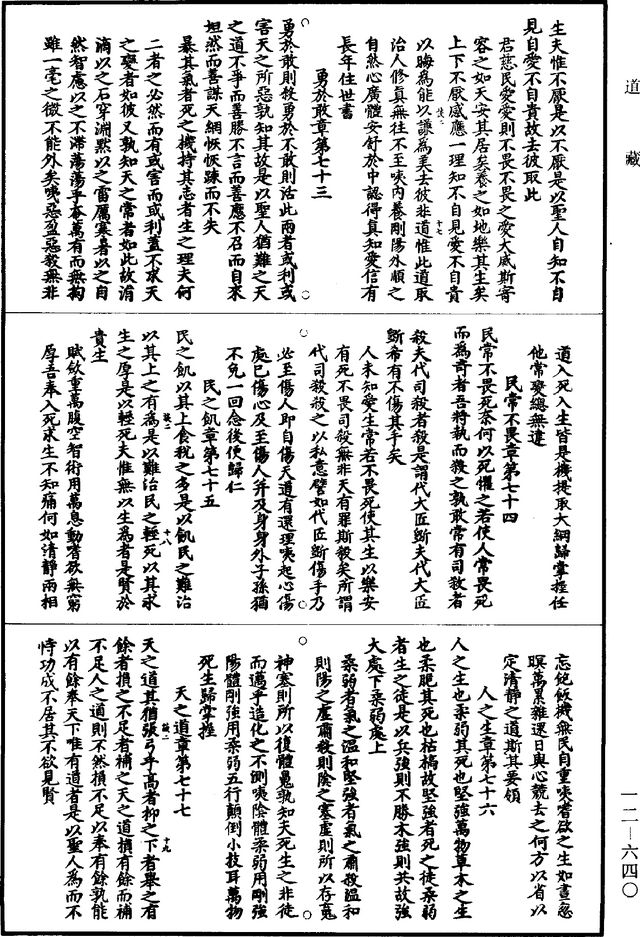 道藏
生夫惟不厭是以不厭是以聖人自知不自
見自愛不自貴故去彼取此
君慈民愛愛則不畏不畏之愛大威斯寄
容之如天安其居矣養之如地樂其生矣
上下不厭感應一理知不自見愛不自貴
以晦為能以謙為美去彼非道惟此道取
治人修真無往不至咦內養剛陽外順之
自然心廣體安舒於中認得真知愛信有
長年住世書
勇於敢章第七十三
勇於敢則殺勇於不敢則活此兩者或利或
害天之所惡孰知其故是以聖人猶難之天
之道不爭而善勝不言而善應不召而自來
坦然而善謀天網恢恢踈而不失
暴其氣者死之機持其志者生之理夫何
二者之必然而有或害而或利蓋不求天
之變者如彼又孰知天之常者如此故涓
滴以之石穿淵默以之雷厲寒暑以之自
然智慮以之不滯蕩蕩乎奄萬有而無拘
雖一毫之微不能外矣咦惡盈惡殺無非
道入死入生皆是機提取大綱歸掌握任
他常變總無違
民常不畏章第七十四
民常不畏死奈何以死懼之若使人常畏死
而為奇者吾將執而殺之孰敢常有司殺者
殺夫代司殺者殺是謂代大匠斲夫代大匠
斲希有不傷其手矣
人未知愛生常若不畏死使其生以樂安
有死不畏司殺無非天有罪斯殺矣所謂
代司殺殺之以私意譬如代匠斲傷手乃
必至傷人即自傷天道有還理咦起心傷
處已傷心及至傷人并及身身外子孫猶
不免一回念後便歸仁
民之飢章第七十五
民之飢以其上食稅之多是以飢民之難治
以其上之有為是以難治民之輕死以其求
生之厚是以輕死夫惟無以生為者是賢於
貴生
賦斂重萬腹空智術用萬息動嗜欲無窮
厚吾奉入死求生不知痛何如清靜兩相
忘飽飯機無民自重咦嗜欲之生如晝忽
暝萬累雜還日與心競去之何方以省以
定清靜之道斯其要領
人之生章第七十六
人之生也柔弱其死也堅強萬物草木之生
也柔脆其死也枯槁故堅強者死之徒柔弱
者生之徒是以兵強則不勝木強則共故強
大處下柔弱處上
柔弱者氣之溫和堅強者氣之肅殺溫和
則陽之虛肅殺則陰之塞虛則所以存䰟
神塞則所以復體魄孰知夫死生之非徒
而邁乎造化之不測咦陰體柔弱用剛強
陽體剛強用柔弱五行顛倒小技耳萬物
死生歸掌握
天之道章第七十七
天之道其猶張弓乎高者抑之下者舉之有
餘者損之不足者補之天之道損有餘而補
不足人之道則不然損不足以奉有餘孰能
以有餘奉天下唯有道者是以聖人為而不
恃功成不居其不欲見賢
一二—六四〇